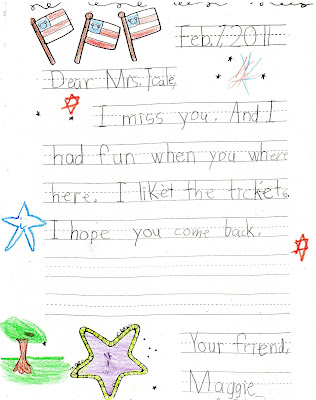 Feb. 7 2011
Dear Mrs. Tcale,
I miss you. And I
had fun when you where
here. I liket the tickets.
I hope you come back.
Your friend,
Maggie